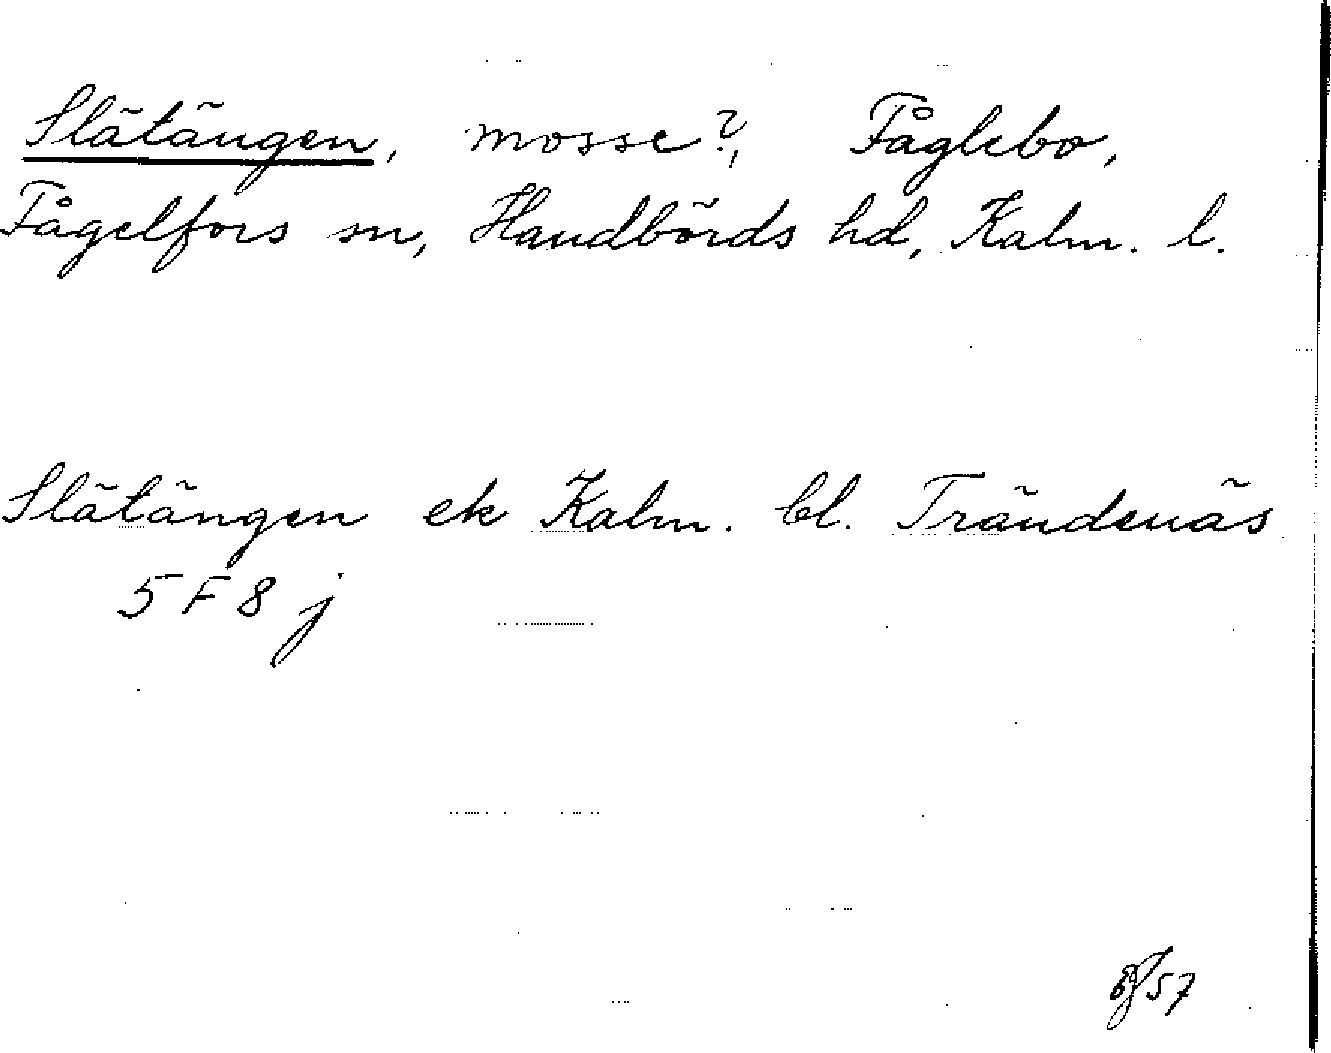 Slätängen, mosse?, Fåglebo,
Fågelfors sn, Handbörds hd, Kalm. l.
Slätängen ek Kalm. bl. Trändenäs
5 F 8 j
57